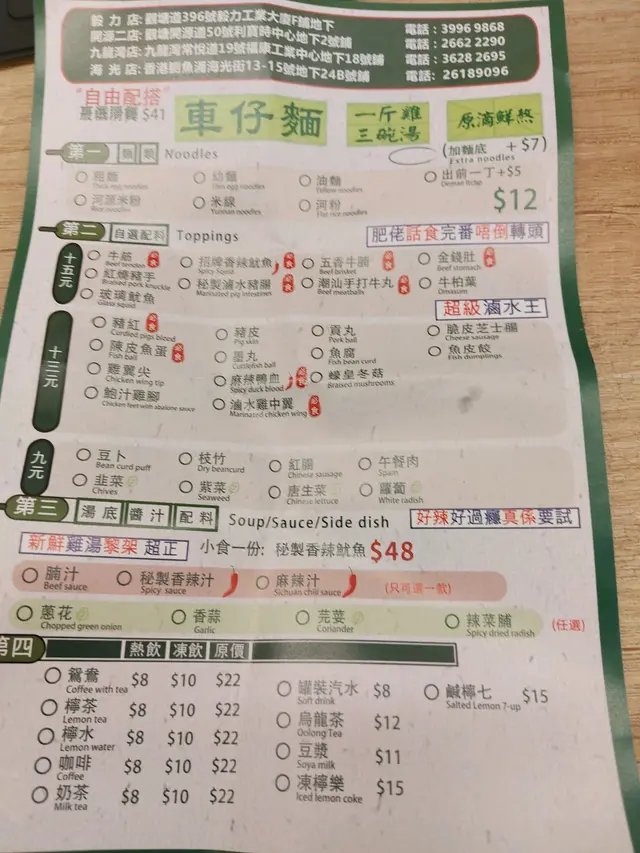 毅力店: 觀塘道396號毅力工業大廈F舖地下 電話: 3996 9868
開源二店: 觀塘開源道50號利寶時中心地下2號舖 電話: 2662 2290
九龍灣店: 九龍灣常悅道19號福康工業中心地下18號舖 電話: 3628 2695
海光店: 香港鰂魚涌海光街13-15號地下24B號舖 電話: 26189096
"自由配搭"
$41
車仔麵
一斤雞三碗湯
原滴鮮熬
第一 麵類 Noodles
(加麵底 + $7)
Extra noodles
粗麵 Thick egg noodles
幼麵 Thin egg noodles
油麵 Yellow noodles
出前一丁+$5 Demae Itchip
河源米粉 Rice noodles
米線 Yunnan noodles
河粉 Flat rice noodles
$12
第二 自選配料 Toppings
肥佬話食完番唔倒轉頭
十五元
牛筋 Beef tendon 必食
招牌香辣魷魚 Spicy Squid 必食
五香牛腩 Beef brisket 必食
金錢肚 Beef stomach 必食
紅燒豬手 Braised pork knuckle
秘製滷水豬腸 Marinated pig intestines
潮汕手打牛丸 Beef meatballs 必食
牛柏葉 Omasum
玻璃魷魚 Glass squid
超級滷水王
十三元
豬紅 Curdled pigs blood 必食
豬皮 Pig skin
貢丸 Pork ball
脆皮芝士腸 Cheese sausage
陳皮魚蛋 Fish ball 必食
墨丸 Cuttlefish ball
魚腐 Fish bean curd
魚皮餃 Fish dumplings
雞翼尖 Chicken wing tip
麻辣鴨血 Spicy duck blood 必食
蠔皇冬菇 Braised mushrooms
鮑汁雞腳 Chicken feet with abalone sauce
滷水雞中翼 Marinated chicken wing 必食
九元
豆卜 Bean curd puff
枝竹 Dry beancurd
紅腸 Chinese sausage
午餐肉 Spam
韭菜 Chives
紫菜 Seaweed
唐生菜 Chinese lettuce
蘿蔔 White radish
第三 湯底 醬汁 配料 Soup/Sauce/Side dish
好辣好過癮真係要試
新鮮雞湯黎架 超正
小食一份: 秘製香辣魷魚 $48
腩汁 Beef sauce
秘製香辣汁 Spicy sauce
麻辣汁 Sichuan chili sauce
(只可選一款)
蔥花 Chopped green onion
香蒜 Garlic
芫荽 Coriander
辣菜脯 Spicy dried radish
(任選)
第四 熱飲 凍飲 原價
鴛鴦 Coffee with tea $8 $10 $22
罐裝汽水 Soft drink $8
鹹檸七 Salted Lemon 7-up $15
檸茶 Lemon tea $8 $10 $22
烏龍茶 Oolong Tea $12
檸水 Lemon water $8 $10 $22
豆漿 Soya milk $11
咖啡 Coffee $8 $10 $22
凍檸樂 Iced lemon coke $15
奶茶 Milk tea $8 $10 $22